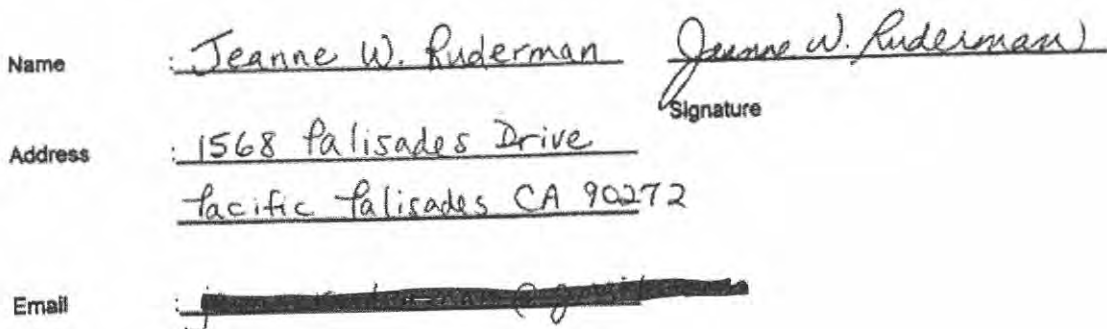 Name : Jeanne W. Ruderman Jeanne W. Ruderman
Signature
Address : 1568 Palisades Drive
Pacific Palisades CA 90272
Email :